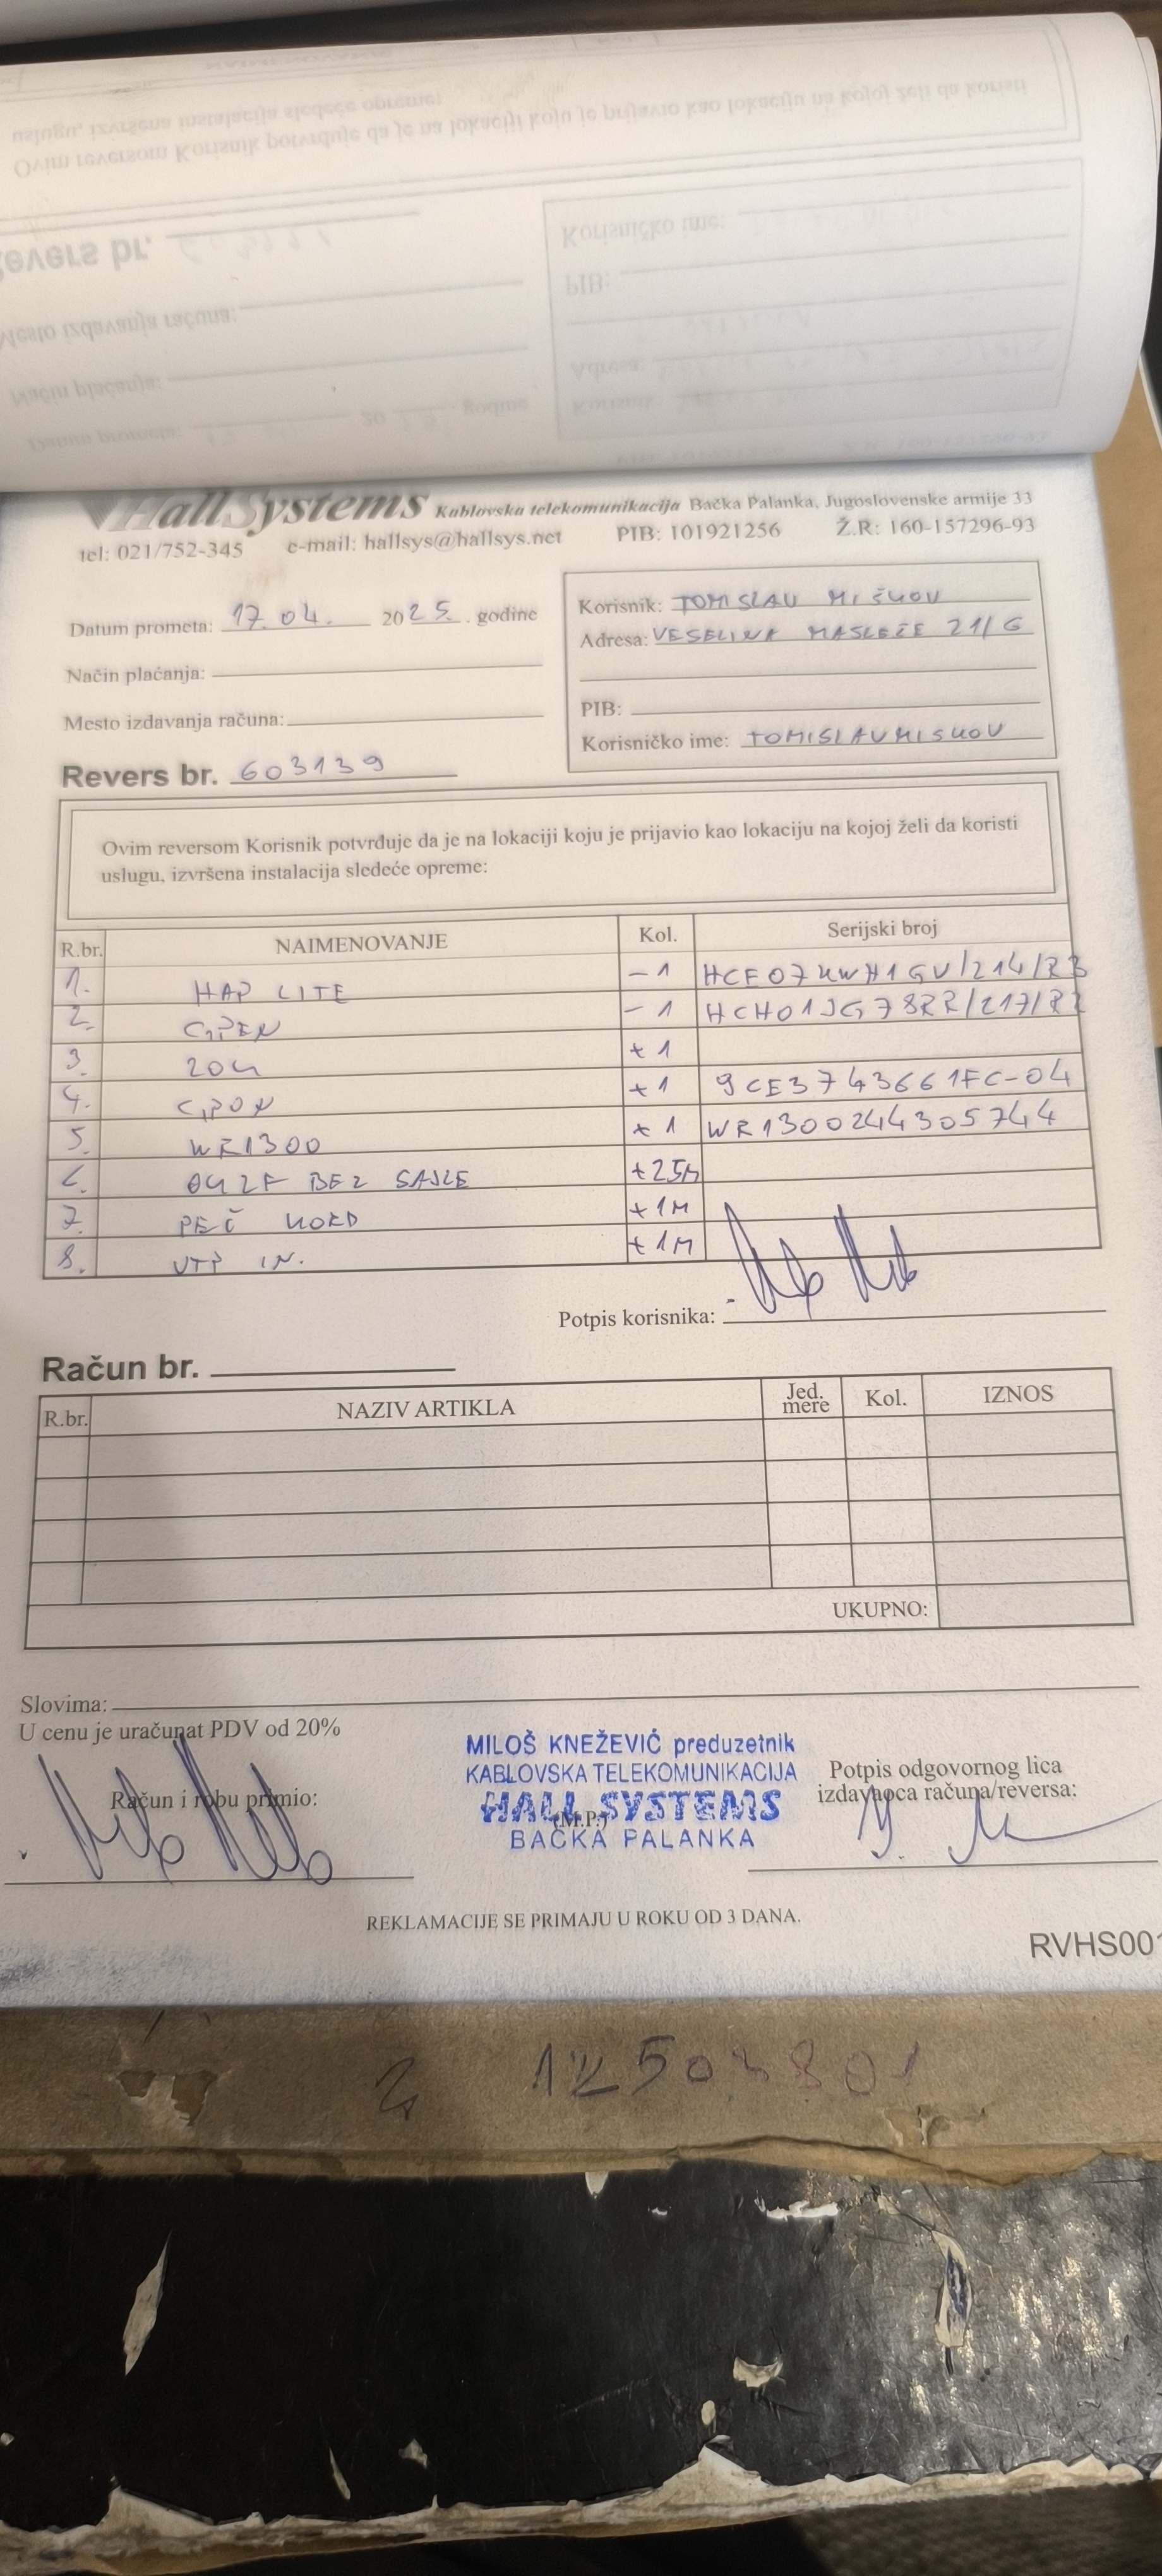 HallSystems Kablovska telekomunikacija Bačka Palanka, Jugoslovenske armije 33
tel: 021/752-345 e-mail: hallsys@hallsys.net PIB: 101921256 Ž.R: 160-157296-93
Datum prometa: 17.04. 2025. godine
Način plaćanja:
Mesto izdavanja računa:
Revers br. 603139
Korisnik: TOMISLAV MIŠKOV
Adresa: VESELINA MASLEŠE 21/6
PIB:
Korisničko ime: TOMISLAVMISKOV
Ovim reversom Korisnik potvrđuje da je na lokaciji koju je prijavio kao lokaciju na kojoj želi da koristi
uslugu, izvršena instalacija sledeće opreme:
R.br. NAIMENOVANJE Kol. Serijski broj
1. HAP LITE -1 HCF07KWH1GV/214/R3
2. GPEN -1 HCH01JG78RR/217/R2
3. ZOK +1
4. GPON +1 9CE3743661FC-04
5. WR1300 +1 WR1300244305744
6. OK 2F BEZ SAJLE +25M
7. PEČ KORD +1M
8. UTP IN. +1M
Potpis korisnika:
Račun br.
R.br. NAZIV ARTIKLA Jed. mere Kol. IZNOS
UKUPNO:
Slovima:
U cenu je uračunat PDV od 20%
Račun i robu primio:
MILOŠ KNEŽEVIĆ preduzetnik
KABLOVSKA TELEKOMUNIKACIJA
HALL SYSTEMS
(M.P.)
BAČKA PALANKA
Potpis odgovornog lica
izdavaoca računa/reversa:
REKLAMACIJE SE PRIMAJU U ROKU OD 3 DANA.
RVHS001